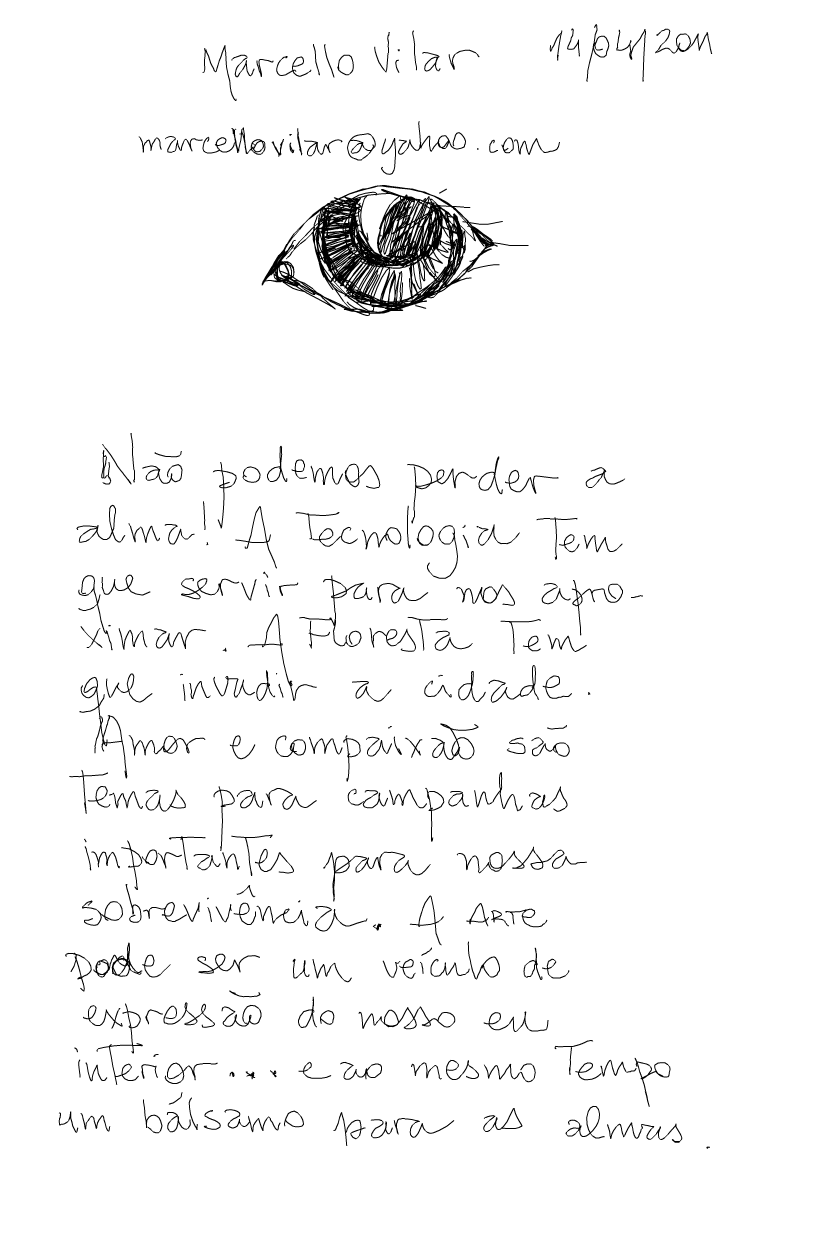 Marcello Vilar 14/04/2011
marcellovilar@yahoo.com
Não podemos perder a
alma! A Tecnologia Tem
que servir para nos apro-
ximar. A Floresta Tem
que invadir a cidade.
Amor e compaixão são
Temas para campanhas
importantes para nossa
sobrevivência. A ARTE
pode ser um veículo de
expressão do nosso eu
interior... e ao mesmo Tempo
um bálsamo para as almas.